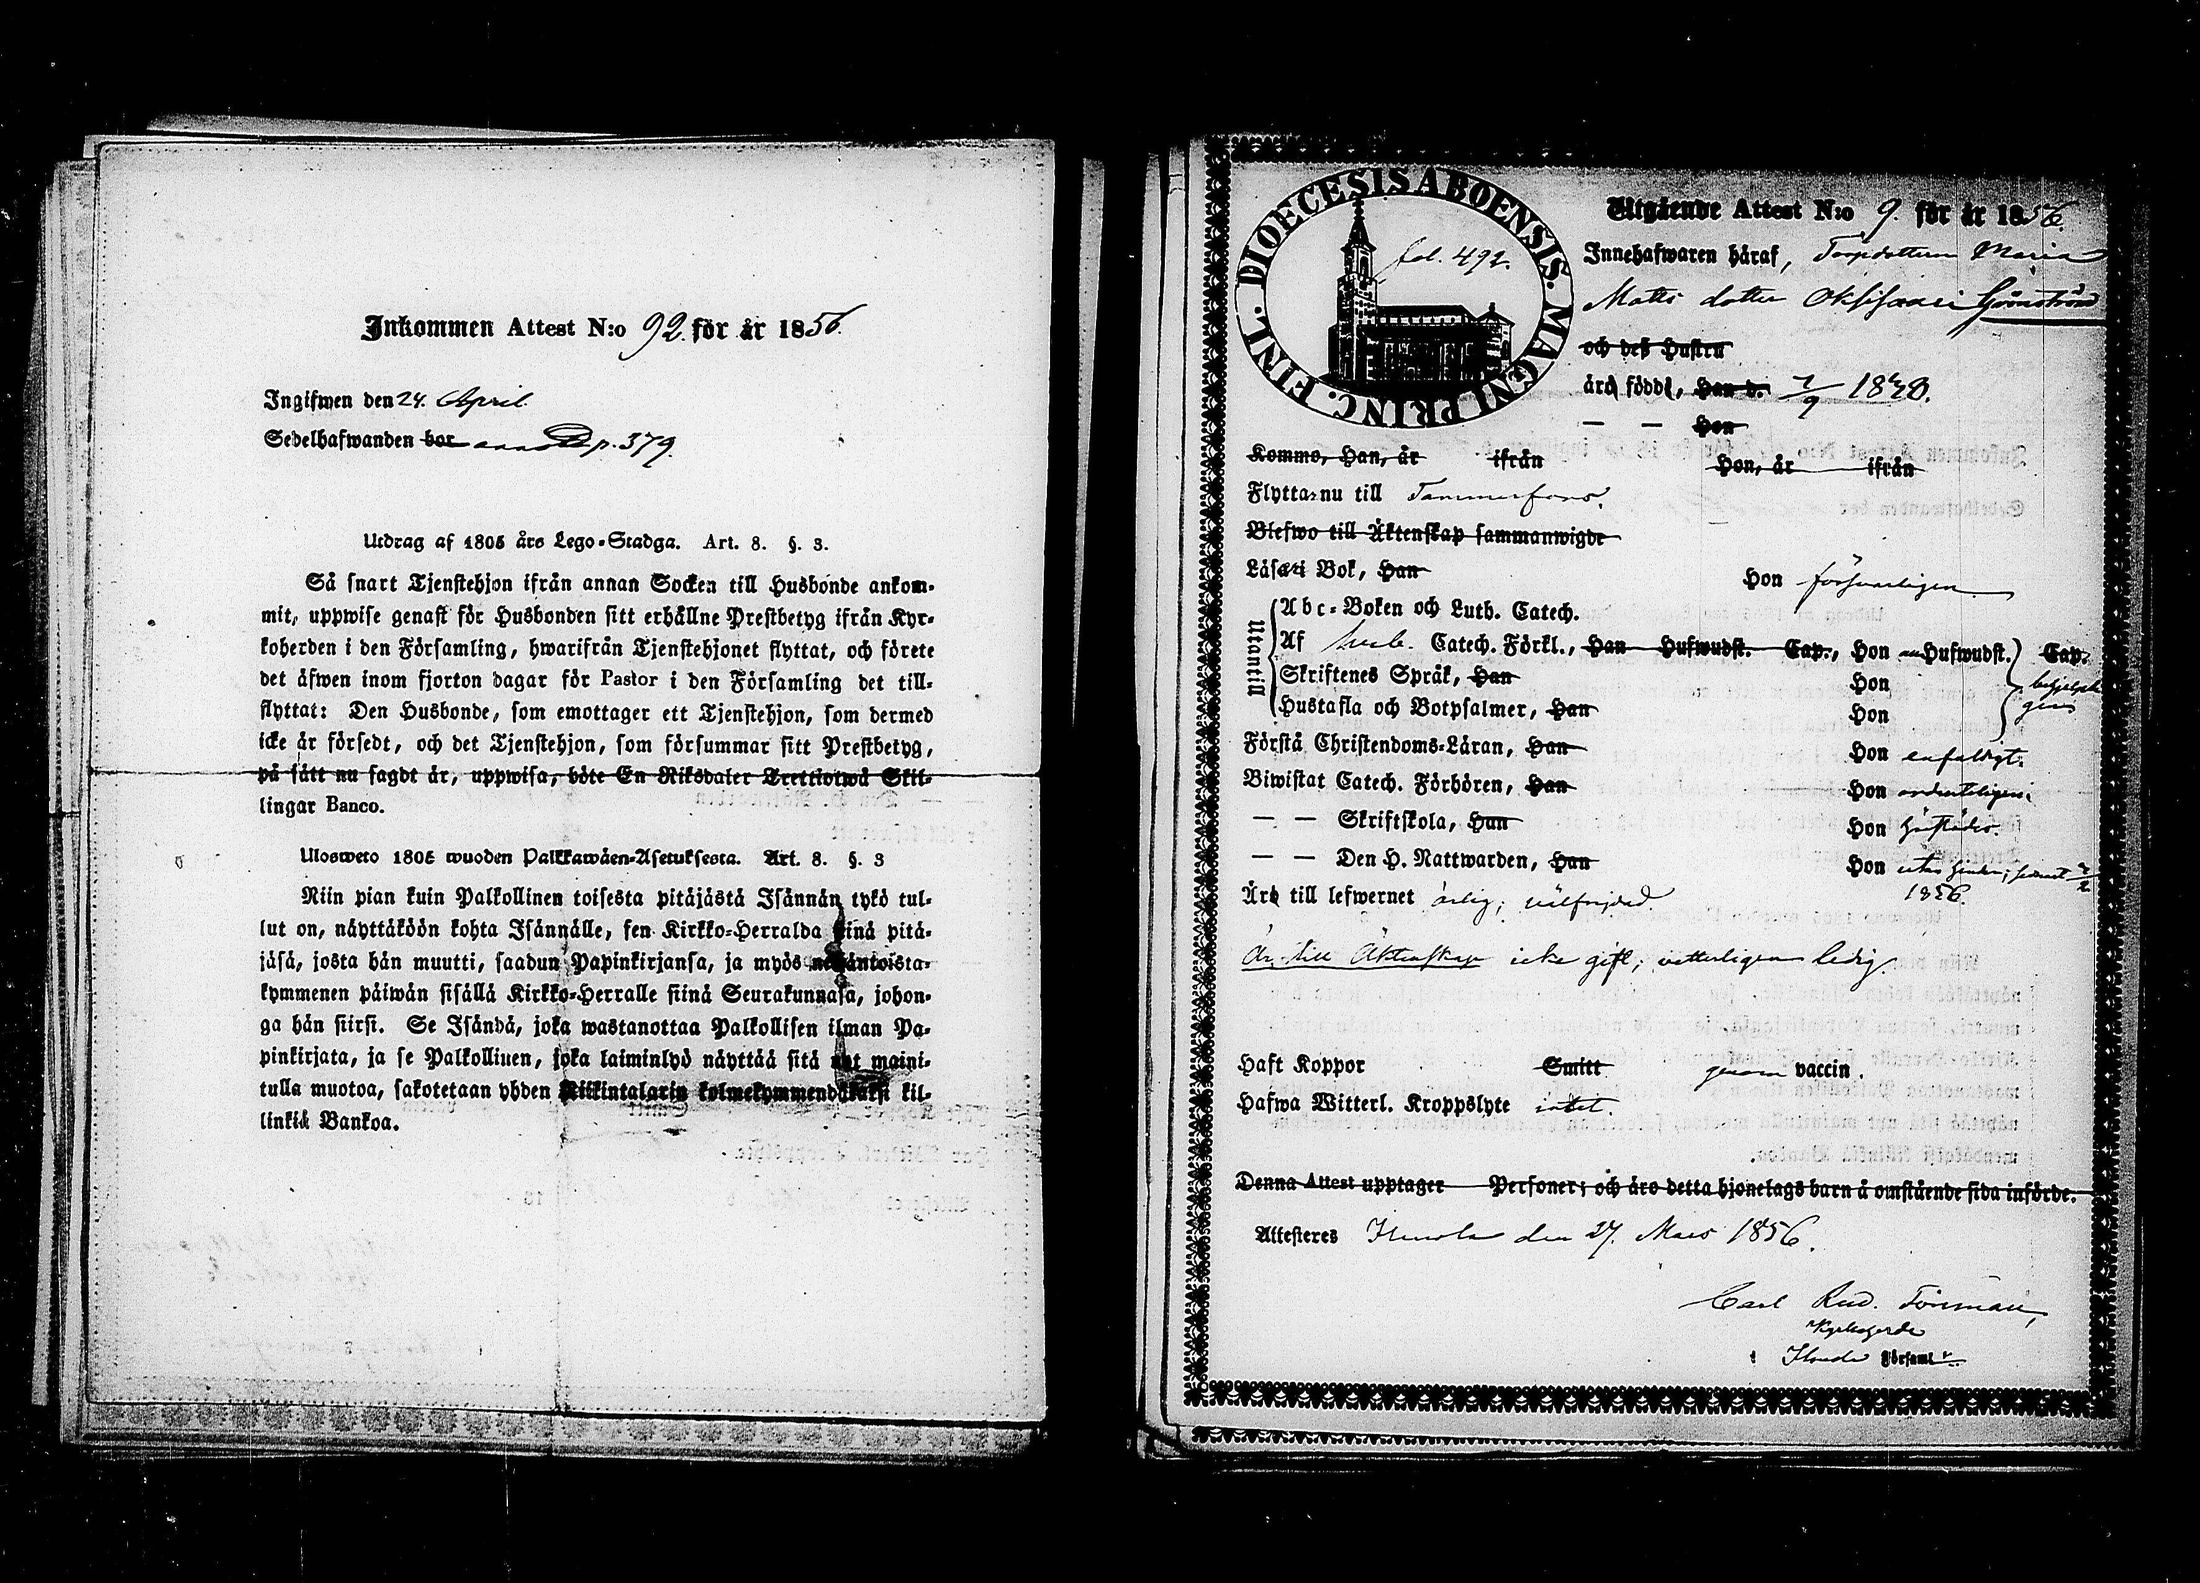 Inkommen Attest N:o 92. för år 1856.
Ingifwen den 24. April.
Sedelhafwanden bor p. 379.
Utdrag af 1805 års Lego-Stadga. Art. 8. §. 3.
Så snart Tjenstehjon ifrån annan Socken till Husbonde ankom-
mit, uppwise genast för Husbonden sitt erhållne Prestbetyg ifrån Kyr-
koherden i den Församling, hwarifrån Tjenstehjonet flyttat, och förete
det äfwen inom fjorton dagar för Pastor i den Församling det till-
flyttat: Den Husbonde, som emottager ett Tjenstehjon, som dermed
icke är försedt, och det Tjenstehjon, som försummar sitt Prestbetyg,
på sätt nu sagdt är, uppwisa, böte En Riksdaler Trettiotwå Skil-
lingar Banco.
Ulosweto 1805 wuoden Palkkawäen-Asetuksesta. Art. 8. §. 3
Niin pian kuin Palkollinen toisesta pitäjästä Isännän tykö tul-
lut on, näyttäköön kohta Isännälle, sen Kirkko-Herralda siinä pitä-
jäsä, josta hän muutti, saadun Papinkirjansa, ja myös neljäntoista-
kymmenen päiwän sisällä Kirkko-Herralle siinä Seurakunnasa, johon-
ga hän siirsi. Se Isändä, joka wastanottaa Palkollisen ilman Pa-
pinkirjata, ja se Palkollinen, joka laiminlyö näyttää sitä nyt maini-
tulla muotoa, sakotetaan yhden Riikintalarin kolmekymmendäkaksi kil-
linkiä Bankoa.
DIOECESIS ABOENSIS. MAGNI PRINC. FINL.
fol. 492.
Utgående Attest N:o 9. för år 1856.
Innehafwaren häraf, Torpdottern Maria
Matts dotter
och des Hustru
äro födde, Han d. 7/9 1840.
— — Hon
Kommo, Han, år ifrån Hon, år ifrån
Flytta nu till Tammerfors.
Blefwo till Äktenskap sammanwigde
Läsa i Bok, Han Hon försvarligen
Utantill
Abc-Boken och Luth. Catech.
Af Catech. Förkl., Han Hufwudst. Cap., Hon Hufwudst. Cap.
Skriftenes Språk, Han Hon
Hustafla och Botpsalmer, Han Hon
Förstå Christendoms-Läran, Han Hon enfaldigt.
Biwistat Catech. Förhören, Han Hon ordentligen.
— — Skriftskola, Han Hon
— — Den H. Nattwarden, Han Hon utan hinder, senast
1856.
Äro till lefwernet ärlig, välfrejdad.
Är till Äktenskap icke gift; vetterligen ledig.
Haft Koppor Smitt genom vaccin.
Hafwa Witterl. Kroppslyte intet.
Denna Attest upptager Personer; och äro detta hjonelags barn å omstående sida införde.
Attesteres den 27. Mars 1856.
Carl Rud. Törnman,
Kyrkoherde
Församl